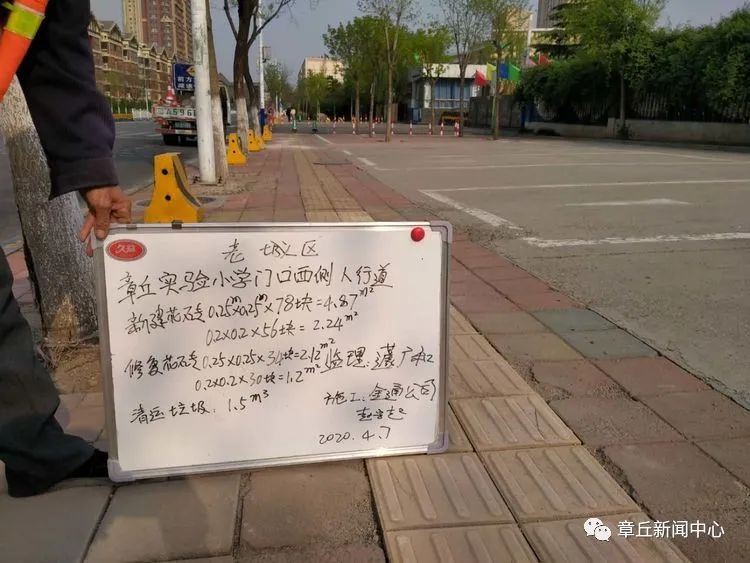 前方
久益
老城区
章丘实验小学门口西侧人行道
新建花砖0.25m×0.25m×78块=4.87m²
0.2×0.2×56块=2.24m²
修复花砖0.25×0.25×34块=2.12m²
监理:
0.2×0.2×30块=1.2m²
清运垃圾:1.5m³
施工:金通公司
2020.4.7
章丘新闻中心